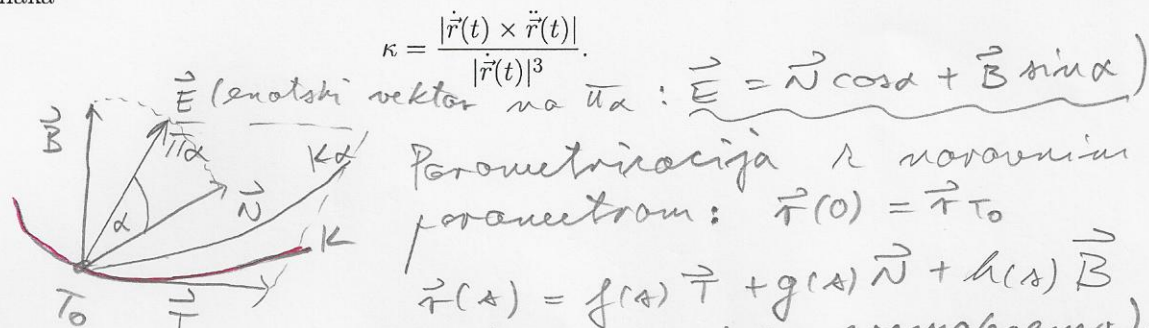 κ = |ṙ⃗(t) × r̈⃗(t)| / |ṙ⃗(t)|³.
E⃗ (enotski vektor na πα : E⃗ = N⃗ cosα + B⃗ sinα)
B⃗
πα
Kα
α
N⃗
K
T₀
T⃗
Parametrizacija z naravnim
parametrom: r⃗(0) = r⃗T₀
r⃗(s) = f(s) T⃗ + g(s) N⃗ + h(s) B⃗